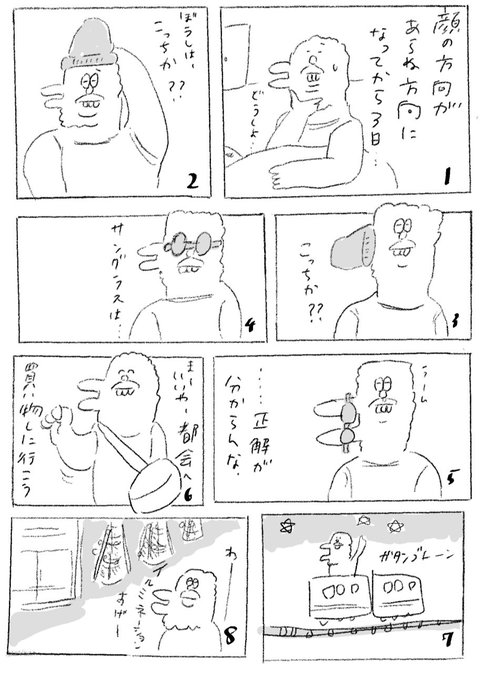 顔の方向が
あらぬ方向に
なってから3日…
どうしよ…
1
ぼうしは、
こっちか
??
2
こっちか??
3
サングラスは…
4
うーん
……正解が
分からんな.
5
まーいいやー都会へ
買い物しに行こう
6
ガタンゴトーン
7
わー
イルミネーション
すげー
8